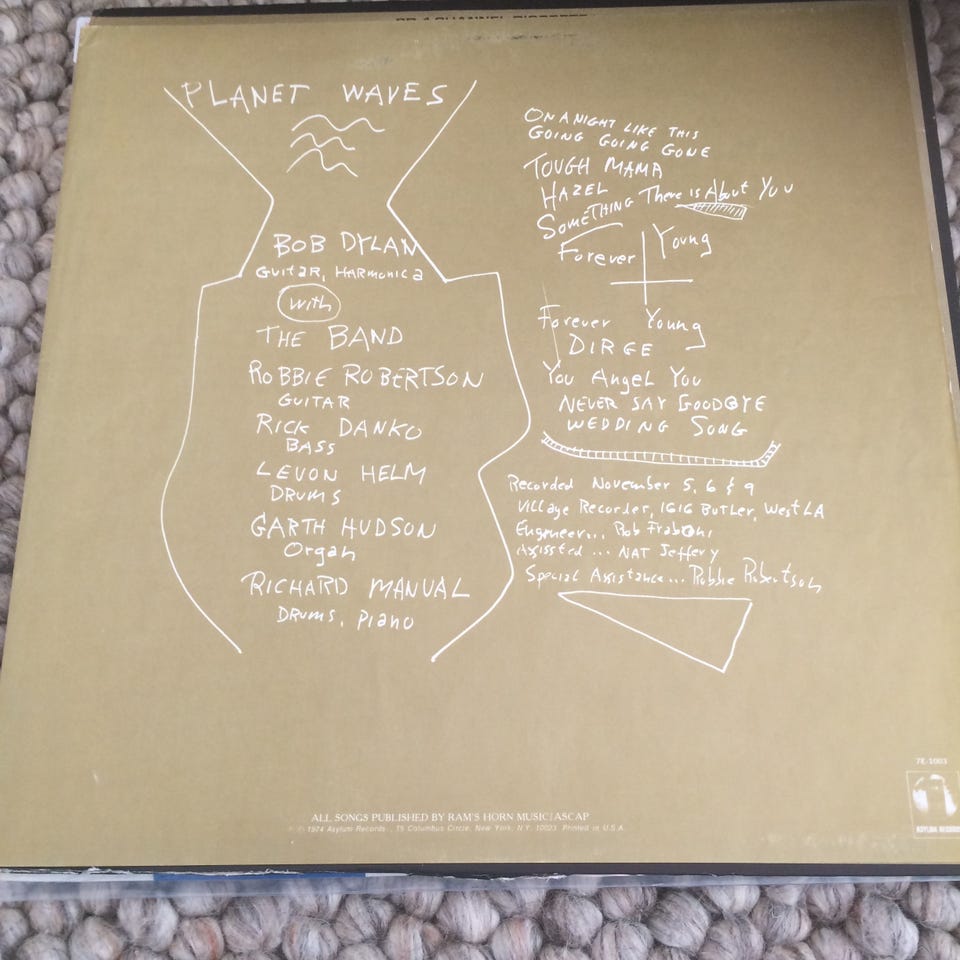 PLANET WAVES
BOB DYLAN
GUITAR, HARMONICA
with
THE BAND
ROBBIE ROBERTSON
GUITAR
RICK DANKO
BASS
LEVON HELM
DRUMS
GARTH HUDSON
Organ
RICHARD MANUAL
DRUMS, piano
ON A NIGHT LIKE THIS
GOING GOING GONE
TOUGH MAMA
HAZEL
SOMETHING There is About You
Forever Young
Forever Young
DIRGE
You Angel You
NEVER SAY GOODBYE
WEDDING SONG
Recorded November 5, 6 & 9
Village Recorder, 1616 BUTLER, West LA
Engineer... Rob Fraboni
Assissted ... NAT Jeffery
Special Assistance... Robbie Robertson
7E-1003
ASYLUM RECORDS
ALL SONGS PUBLISHED BY RAM'S HORN MUSIC/ASCAP
1974 Asylum Records, 15 Columbus Circle, New York, N.Y. 10023 Printed in U.S.A.